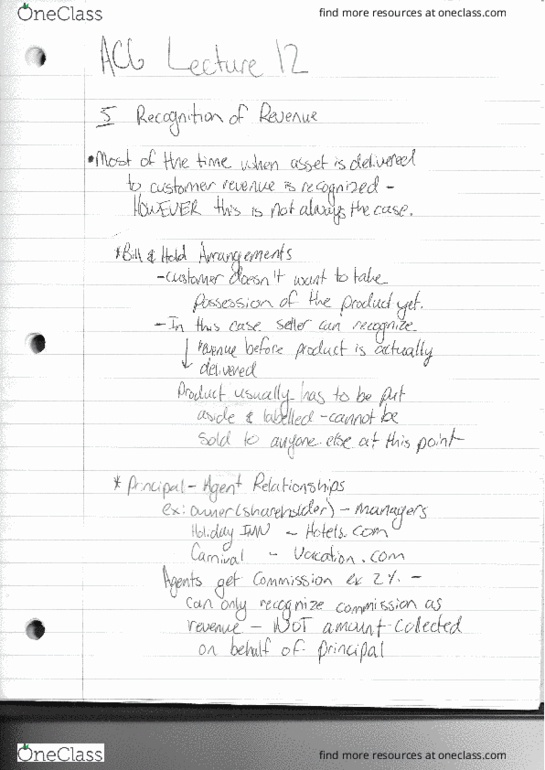 OneClass
find more resources at oneclass.com
ACG Lecture 12
5 Recognition of Revenue
•Most of the time when asset is delivered
to customer revenue is recognized -
HOWEVER this is not always the case.
*Bill & Hold Arrangements
-customer doesn't want to take
possession of the product yet.
-In this case seller can recognize
revenue before product is actually
delivered
Product usually has to be put
aside & labelled - cannot be
sold to anyone else at this point
* Principal - Agent Relationships
ex: owner (shareholder) - managers
Holiday INN - Hotels.com
Carnival - Vacation.com
Agents get Commission ex 2% -
can only recognize commission as
revenue - NOT amount collected
on behalf of principal
OneClass
find more resources at oneclass.com